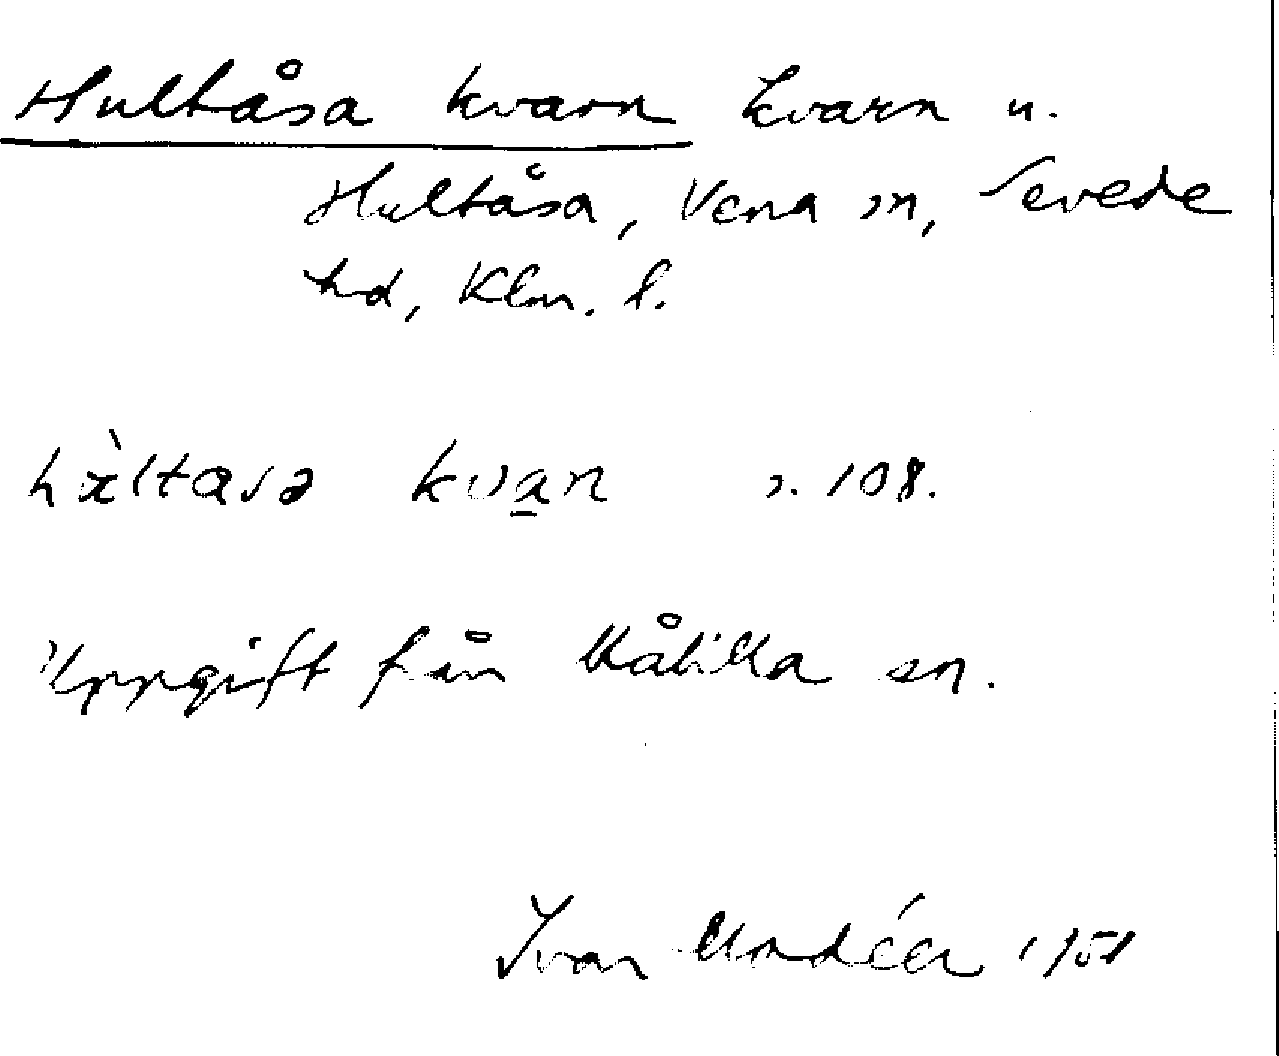 Hultåsa kvarn kvarn u.
Hultåsa, Vena sn, Sevede
hd, Klm. l.
kvan s. 108.
Uppgift från Målilla sn.
Ivar Modéer 1951